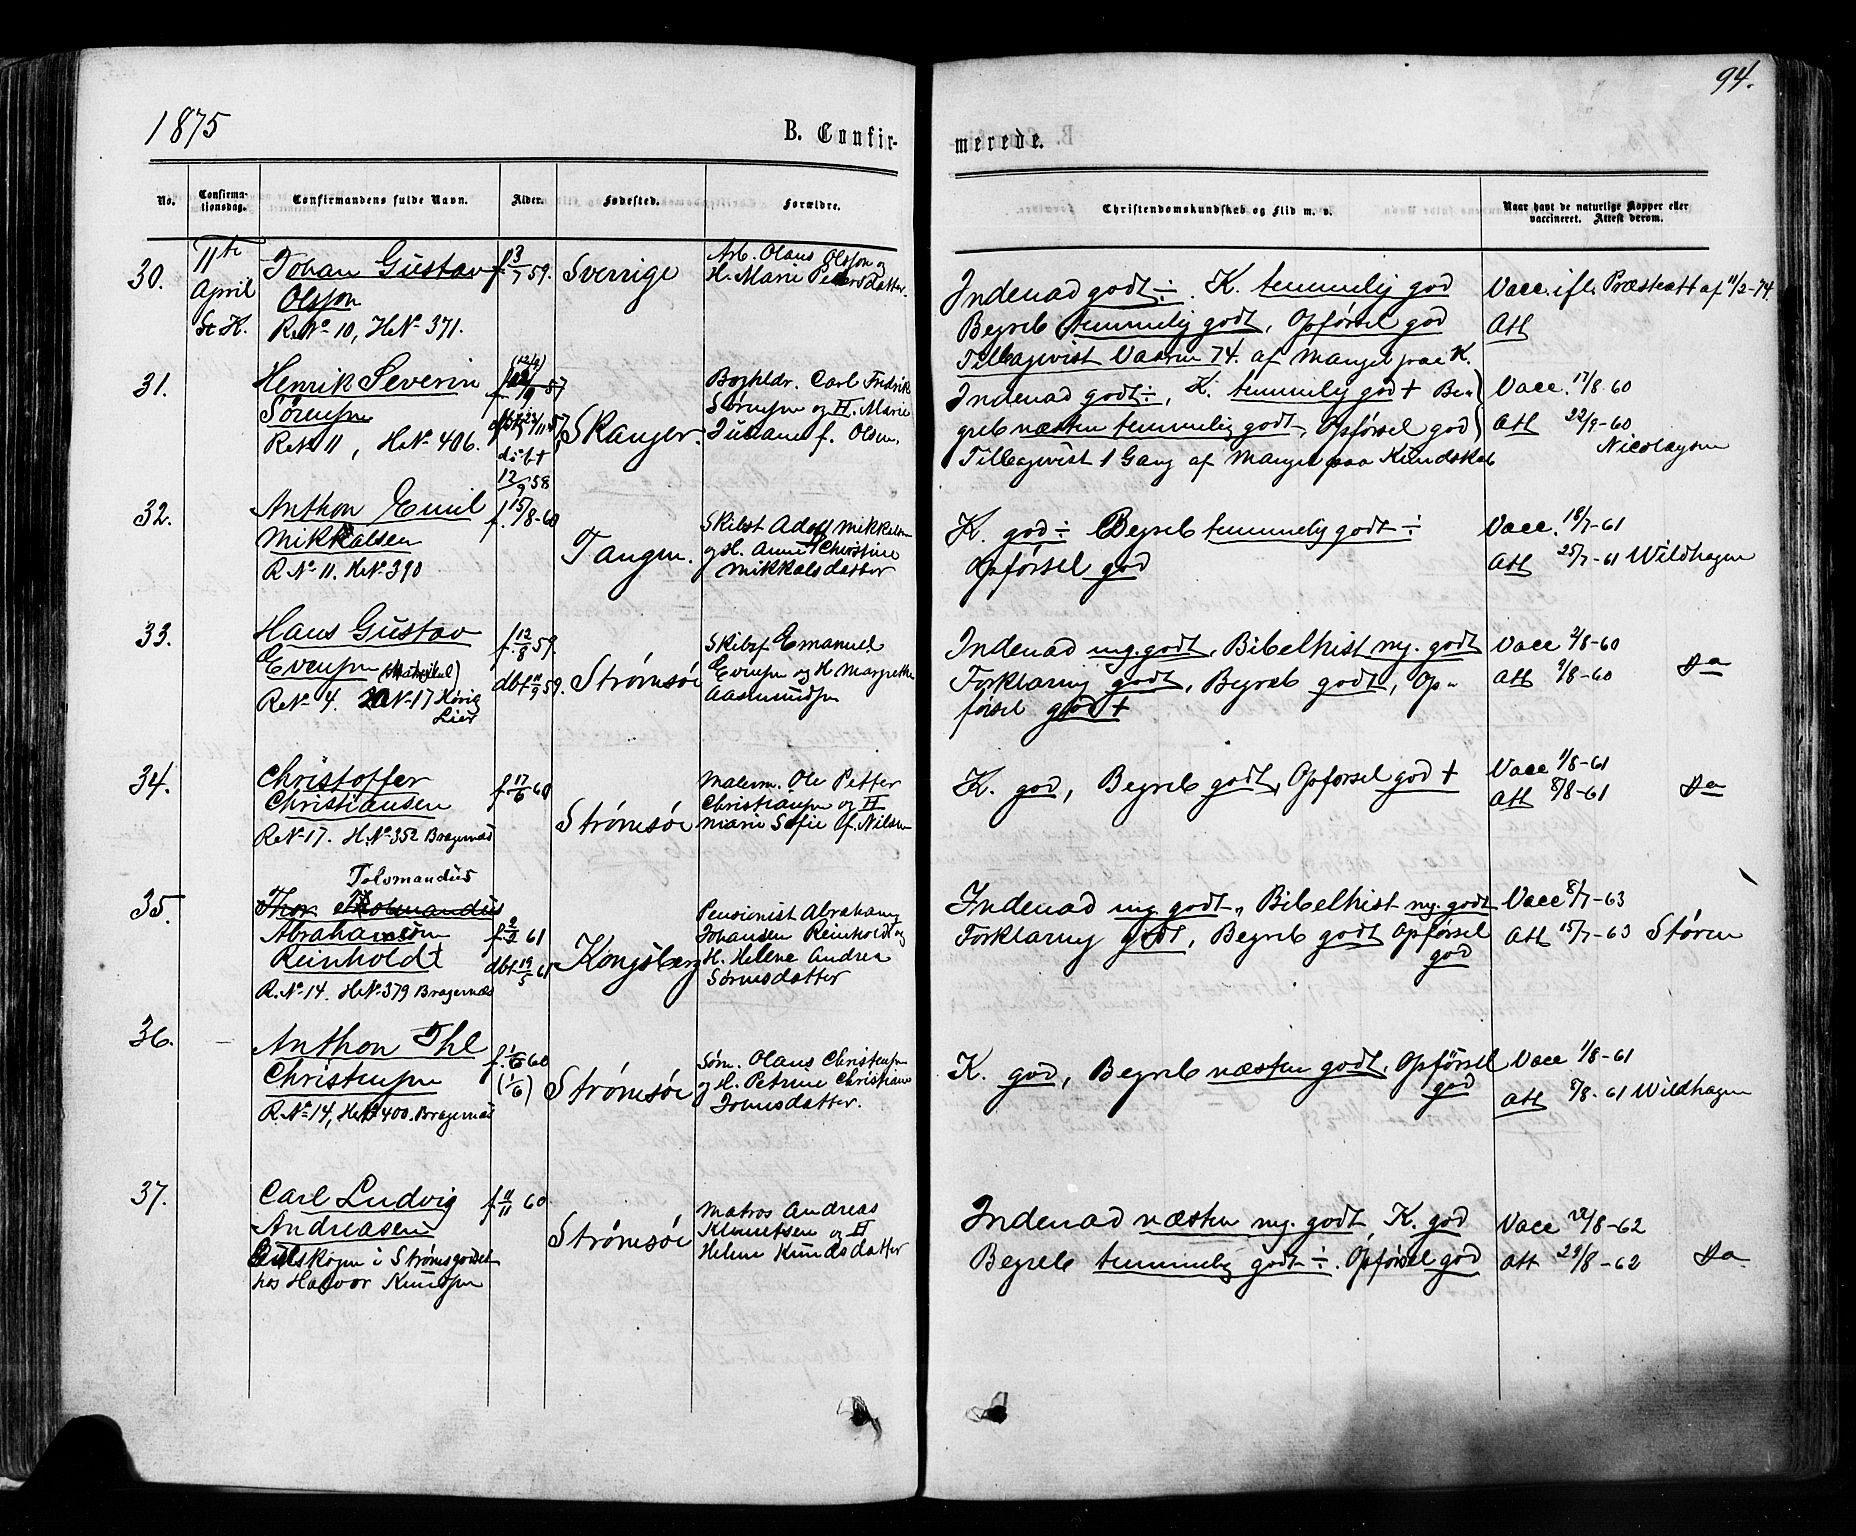 94.
1875
B. Confir-
merede.
No.
Confirma-
tionsdag.
Confirmandens fulde Navn.
Alder.
Fødested.
Forældre.
Christendomskundskab og Flid m. v.
Naar havt de naturlige Kopper eller
vaccineret. Attest derom.
30.
11te
April
St K.
Johan Gustav
Olsson
R.No 10, H.No 371.
f. 3/7 59.
Sverrige
Arb. Olaus Olsson og
H. Marie Petersdatter.
Indenad godt ÷. K. temmelig god
Begreb temmelig godt, Opførsel god
Tilbagevist Vaaren 74. af Mangel paa K.
Vacc. ifl. Præsteatt af 11/2-74.
Att
31.
Henrik Severin
Sørensen
R.No 11, H.No 406.
(12/9)
57
døbt
12/9 58
Skanger.
Boghldr. Carl Fredrik
Sørensen og H. Marie
Juliane f. Olsen.
Indenad godt ÷, K. temmelig god + Be-
greb næsten temmelig godt, Opførsel god
Tilbagevist 1 Gang af Mangel paa Kundskab
Vacc. 17/8-60
Att 22/9-60
Nicolaysen
32.
Anthon Emil
Mikkalsen
R.No 11. H.No 390
f. 15/8-60
Tangen.
Skibst Adolf Mikkalsen
og H. Anne Christine
Mikkalsdatter
K. god ÷ Begreb temmelig godt ÷
Opførsel god
Vacc. 18/7-61
Att 25/7-61 Wildhagen
33.
Hans Gustav
Evensen
R.No 4. No 17
Lier
f. 12/8 59.
dbt 11/9 59.
Strømsøe
Skibsf Emanuel
Evensen og H Margrethe
Aasmundsen
Indenad mg. godt, Bibelhist mg. godt
Forklaring godt, Begreb godt, Op-
førsel god +
Vacc 2/8-60
Att 9/8-60 Da
34.
Christoffer
Christiansen
R.No 17. H.No 352 Bragernæs
f. 17/6 60
Strømsøe
Malerm. Ole Petter
Christiansen og H
Marie Sofie f. Nilsen
K. god, Begreb godt, Opførsel god +
Vacc 1/8-61
Att 8/8-61 Da
35.
Tolomandus
Thor
Abrahamsøn
Reinholdt
R.No 14. H.No 379 Bragernæs
f. 2/2 61
dbt 19/5 61
Kongsberg
Pensionist Abraham
Johansen Reinholdt og
H. Helene Andrea
Sørensdatter
Indenad mg. godt, Bibelhist mg. godt
Forklaring godt, Begreb godt Opførsel
god
Vacc 8/7-63
Att 15/7-63 Støren
36.
Anthon Ihl
Christensen
R.No 14, H.No 400. Bragernæs
f. 1/6 60
(1/6)
Strømsøe
Søm. Olaus Christensen
og H. Petrine Christiane
Johnsdatter.
K. god, Begreb næsten godt, Opførsel
god
Vacc 1/8-61
Att 8/8-61 Wildhagen
37.
Carl Ludvig
Andreasen
Gulskogen i Strømsgodset
hos Halvor Knudsen
f. 11/11 60
Strømsøe
Matros Andreas
Klemetsen og H
Helene Knudsdatter
Indenad næsten mg. godt, K. god
Begreb temmelig godt ÷. Opførsel god
Vacc 22/8-62
Att 29/8-62 Da